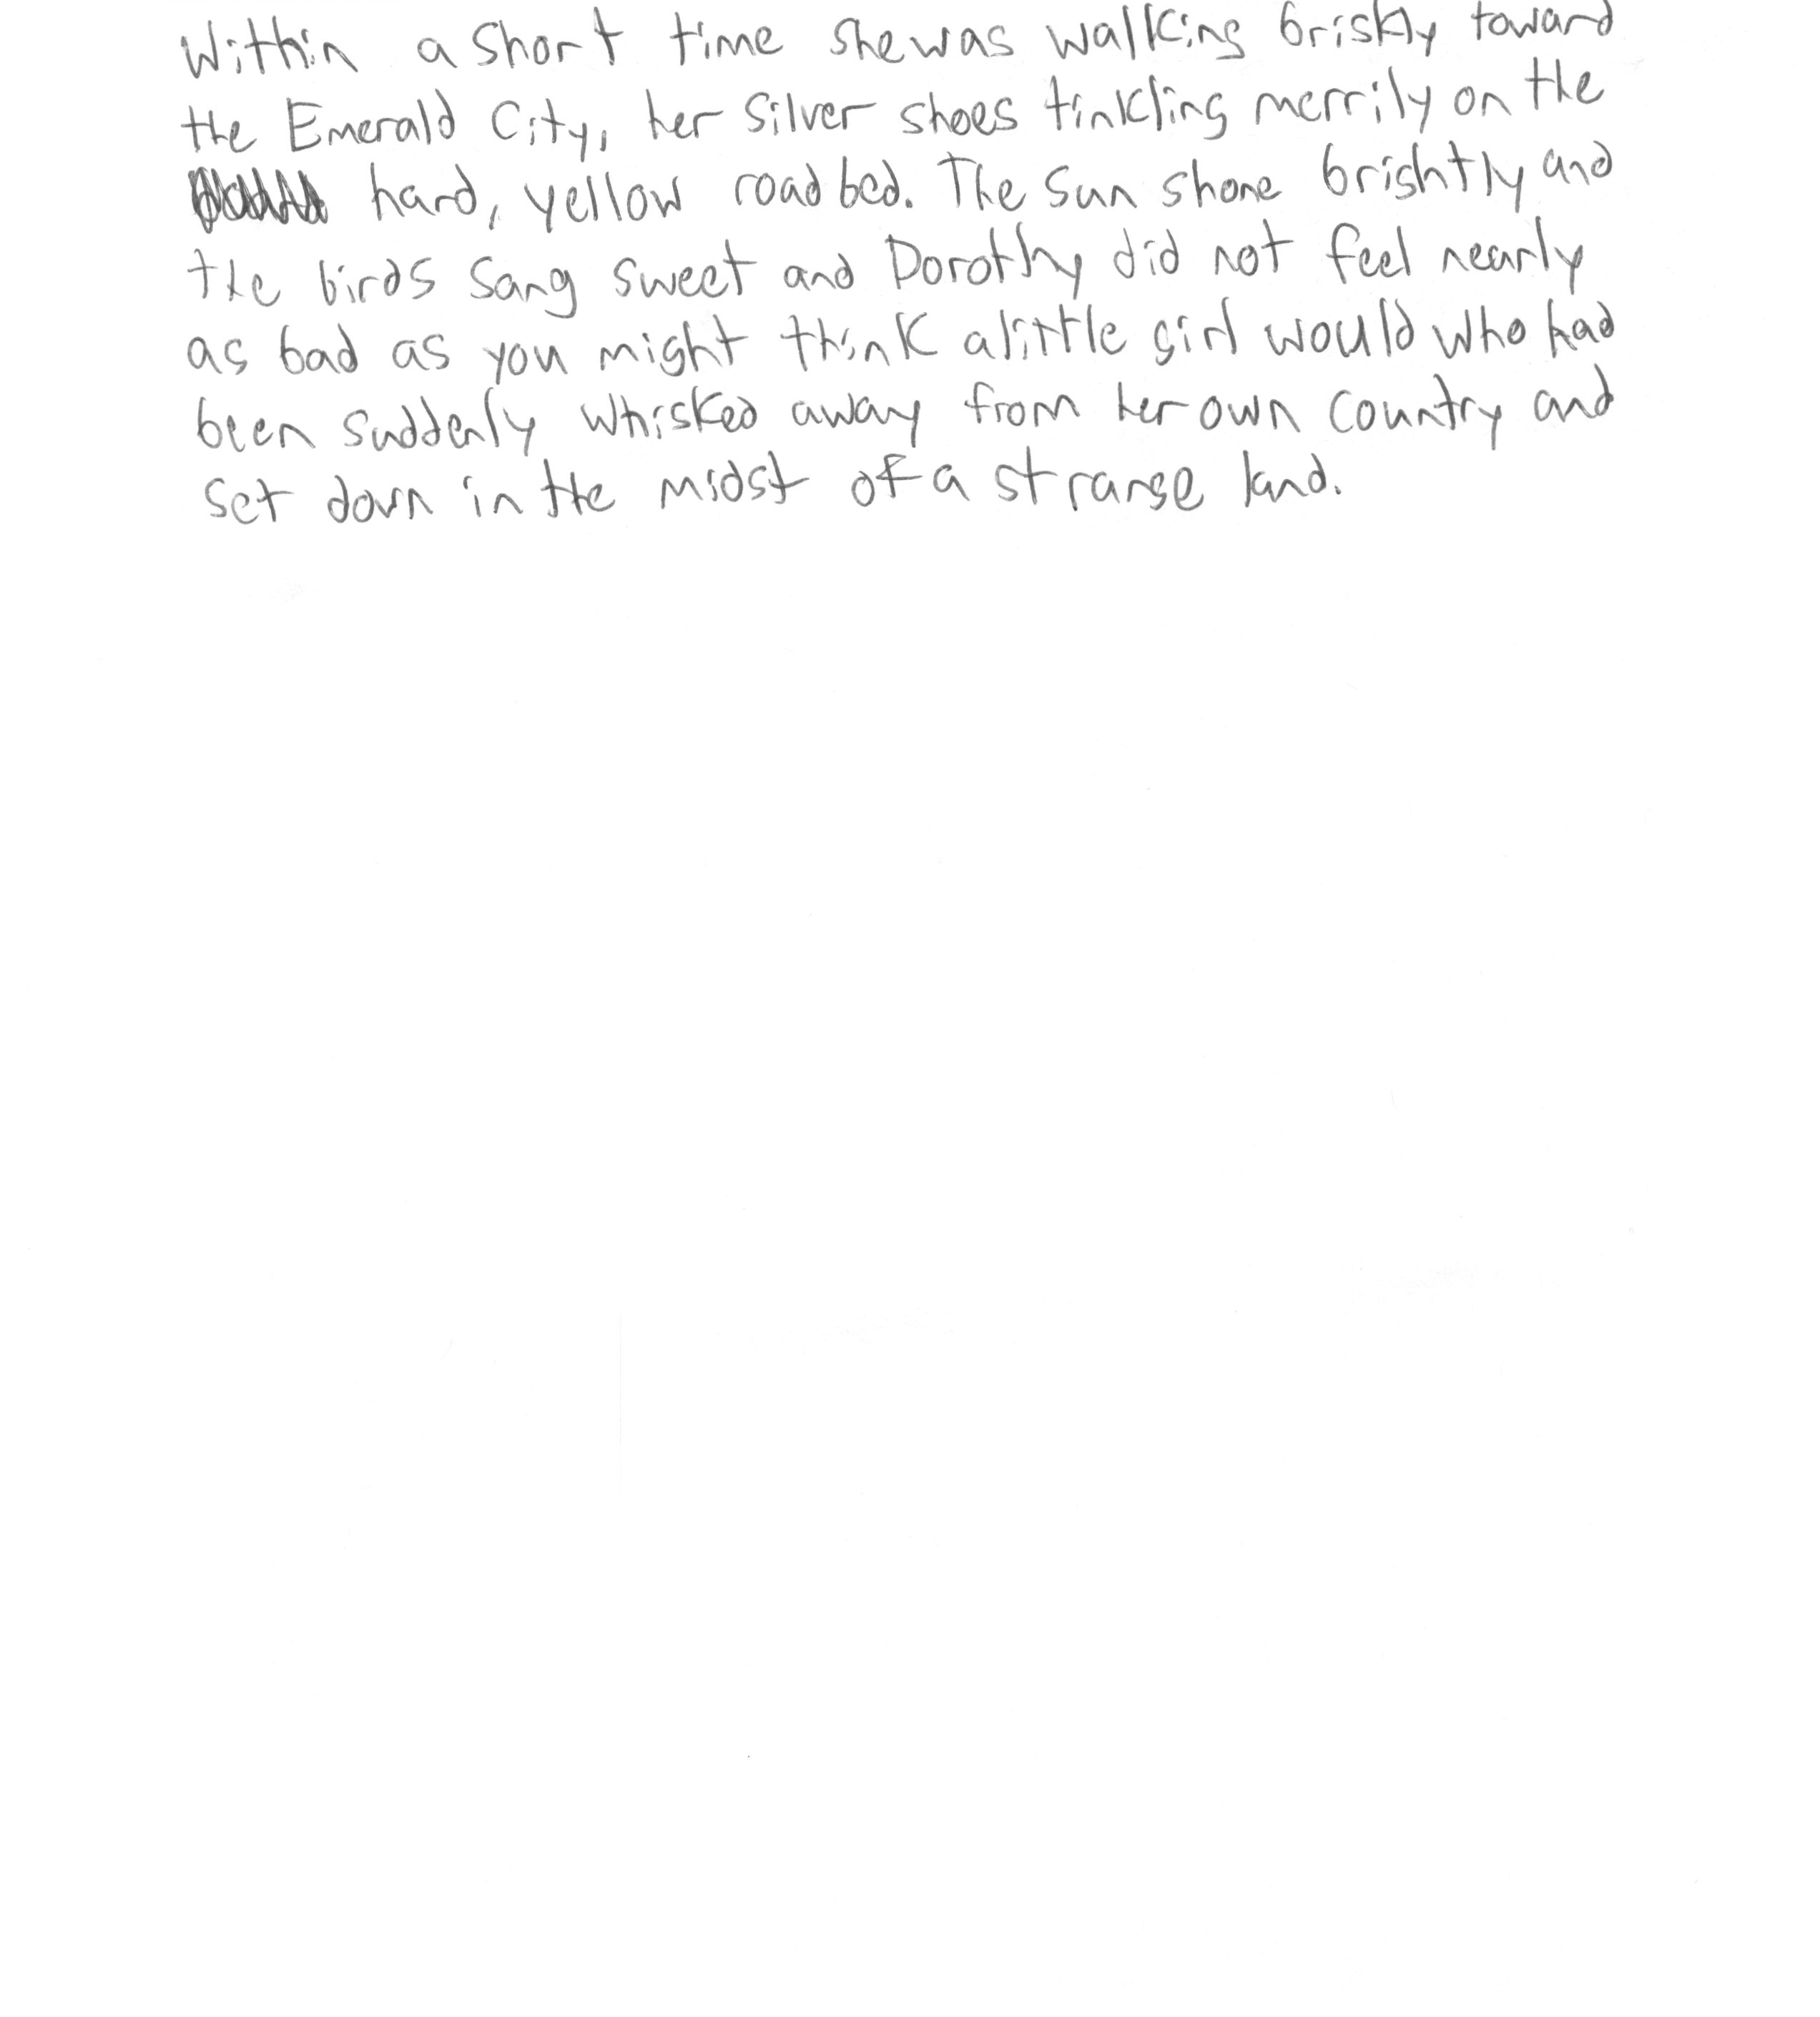 Within a short time she was walking briskly toward
the Emerald City, her silver shoes tinkling merrily on the
hard, yellow roadbed. The sun shone brightly and
the birds sang sweet and Dorothy did not feel nearly
as bad as you might think a little girl would who had
been suddenly whisked away from her own country and
set down in the midst of a strange land.